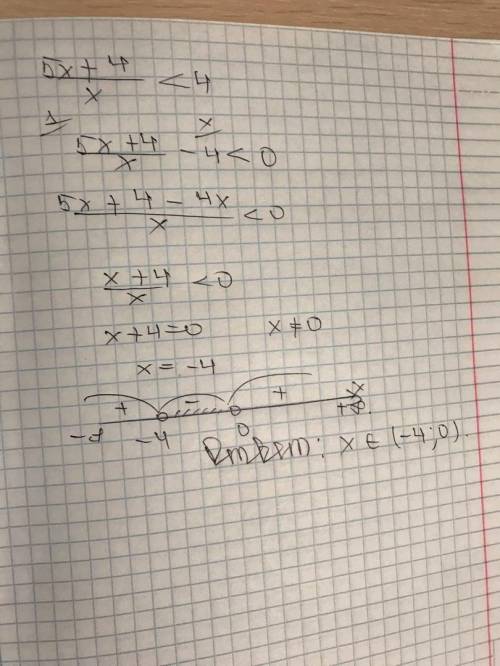 (5x + 4)/x < 4
1 (5x + 4)/x - 4 < 0
x
(5x + 4 - 4x)/x < 0
(x + 4)/x < 0
x + 4 = 0 x ≠ 0
x = -4
+ - + x
-∞ -4 0 +∞
Ответ: x ∈ (-4; 0).